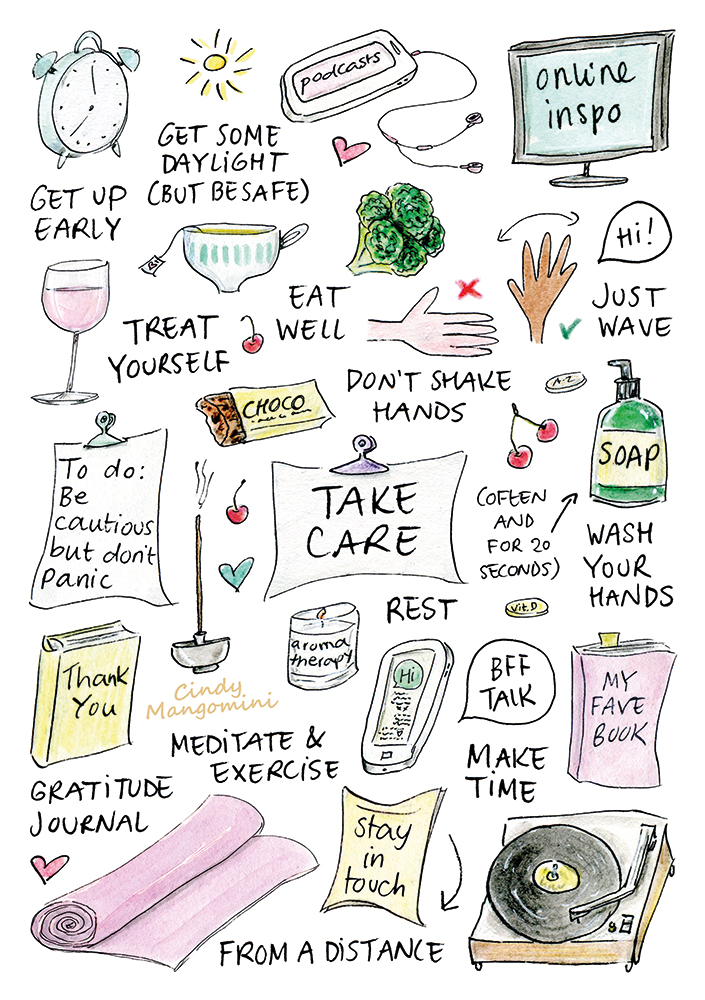 podcasts
online
inspo
GET SOME
DAYLIGHT
(BUT BE SAFE)
GET UP
EARLY
Hi!
JUST
WAVE
EAT
WELL
TREAT
YOURSELF
DON'T SHAKE
HANDS
A-Z
CHOCO
SOAP
To do:
Be
cautious
but don't
panic
TAKE
CARE
(OFTEN
AND
FOR 20
SECONDS)
WASH
YOUR
HANDS
REST
Vit.D
aroma
therapy
Thank
You
Cindy
Mangomini
Hi
BFF
TALK
MY
FAVE
BOOK
MEDITATE &
EXERCISE
MAKE
TIME
GRATITUDE
JOURNAL
Stay
in
touch
FROM A DISTANCE